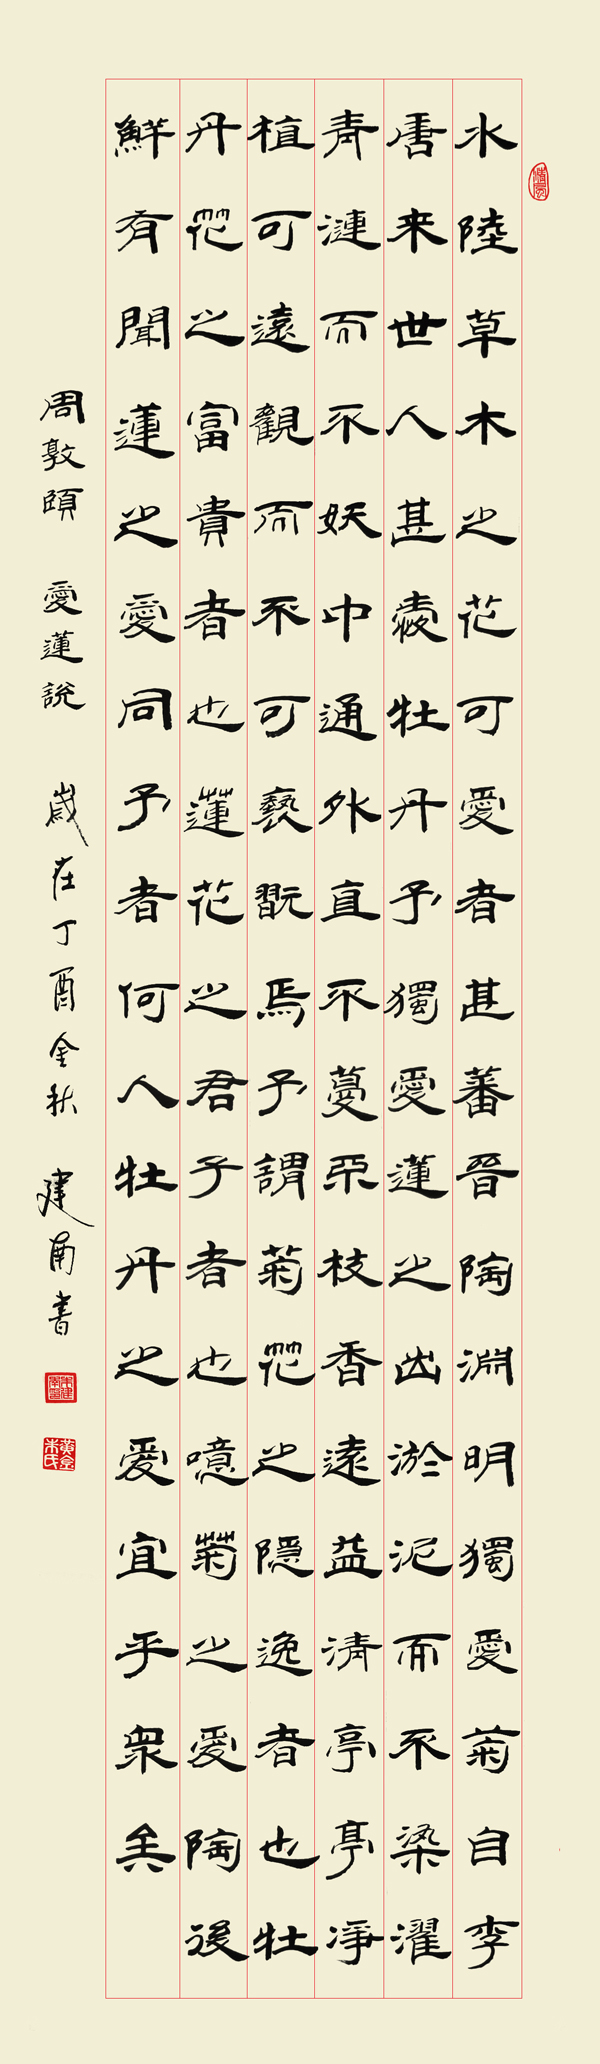 水陸草木之花可愛者甚蕃晉陶淵明獨愛菊自李
唐来世人甚愛牡丹予獨愛蓮之出淤泥而不染濯
青漣而不妖中通外直不蔓不枝香遠益清亭亭淨
植可遠觀而不可褻翫焉予謂菊花之隱逸者也牡
丹花之富貴者也蓮花之君子者也噫菊之愛陶後
鮮有聞蓮之愛同予者何人牡丹之愛宜乎眾矣
周敦頤 愛蓮說 歲在丁酉金秋 建南書